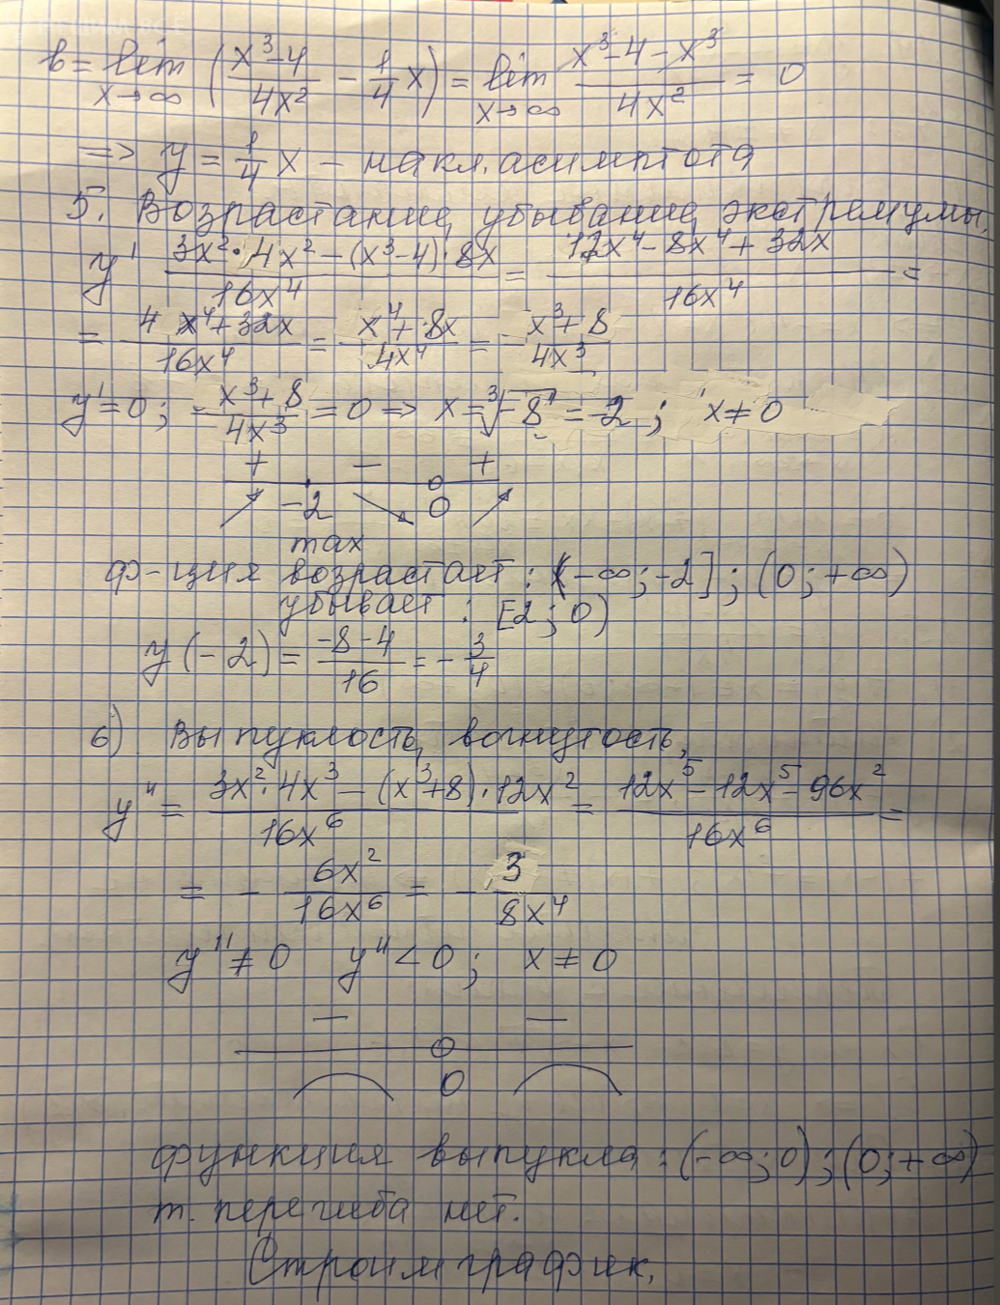 b = lim x→∞ (x³-4/4x² - 1/4 x) = lim x→∞ x³-4-x³/4x² = 0
=> y = 1/4 x - накл. асимптота
5. Возрастание, убывание, экстремумы,
y' 3x²·4x² - (x³-4)·8x/16x⁴ = 12x⁴-8x⁴+32x/16x⁴ =
= 4x⁴+32x/16x⁴ = x⁴+8x/4x⁴ = x³+8/4x³
y'=0; x³+8/4x³ = 0 => x = ³√-8 = -2; x≠0
+ - +
-2 0
max
ф-ция возрастает: (-∞; -2]; (0; +∞)
убывает: [2; 0)
y(-2) = -8-4/16 = -3/4
6) Выпуклость, вогнутость,
y'' = 3x²·4x³ - (x³+8)·12x²/16x⁶ = 12x⁵-12x⁵-96x²/16x⁶ =
= - 6x²/16x⁶ = - 3/8x⁴
y''≠0 y''<0; x≠0
- -
0
функция выпукла: (-∞; 0); (0; +∞)
т. перегиба нет.
Строим график.